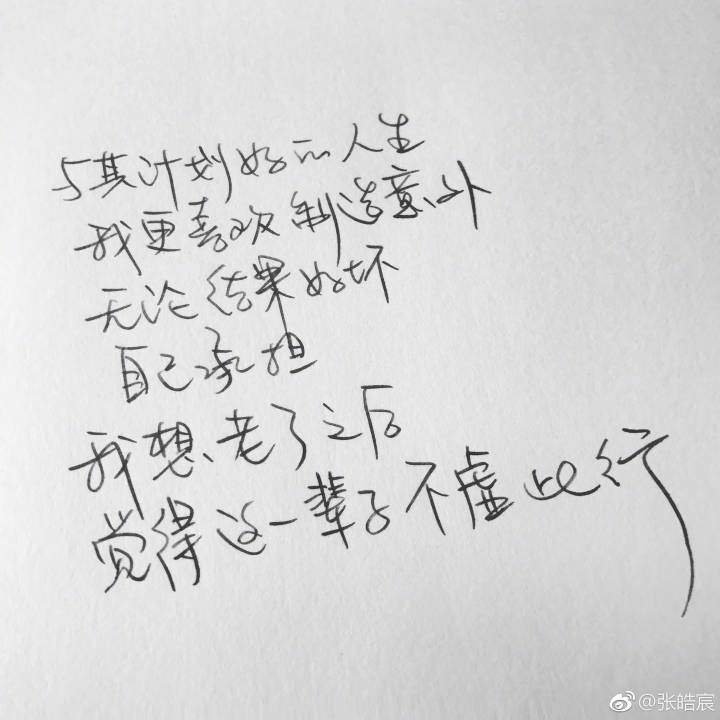 与其计划好的人生
我更喜欢制造意外
无论结果好坏
自己承担
我想老了之后
觉得这一辈子不虚此行
@张皓宸